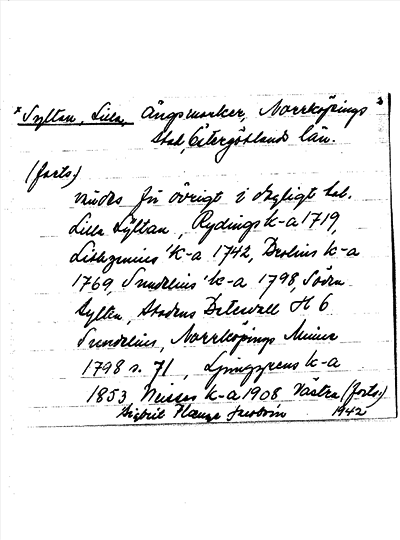 x Syltan, Lilla, Ängsmarker, Norrköpings 3
stad, Östergötlands län.
(forts.)
vändes för övrigt i dagligt tal.
Lilla Syltan, Rydings k-a 1719,
k-a 1742, Brolins k-a
1769, Sundelius' k-a 1798, Södra
Syltan, Stadens H 6
Sundelius, Norrköpings Minne
1798 s. 71, Ljunggrens k-a
1853, k-a 1908 Västra (forts.)
Jacobson 1942